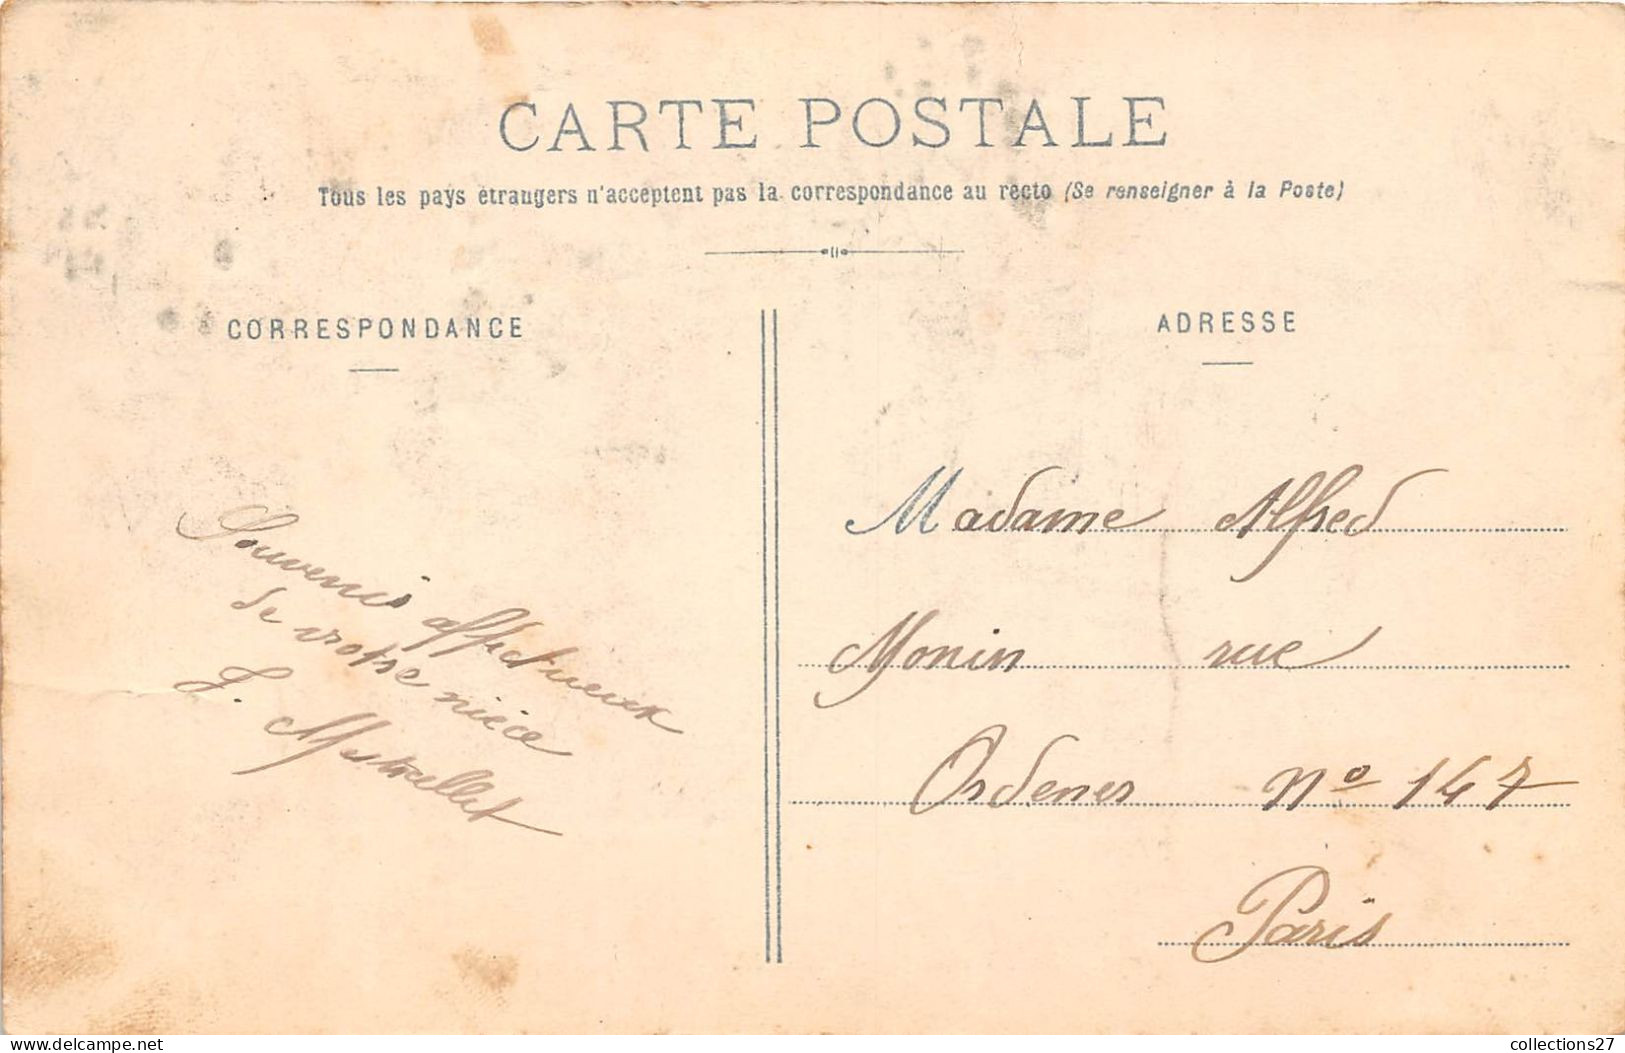 CARTE POSTALE
Tous les pays étrangers n'acceptent pas la correspondance au recto (Se renseigner à la Poste)
CORRESPONDANCE
Souvenir affectueux
de votre nièce
J. Mestrallet
ADRESSE
Madame Alfred
Monin rue
Ordener Nº 147
Paris
delcampe.net
collections27